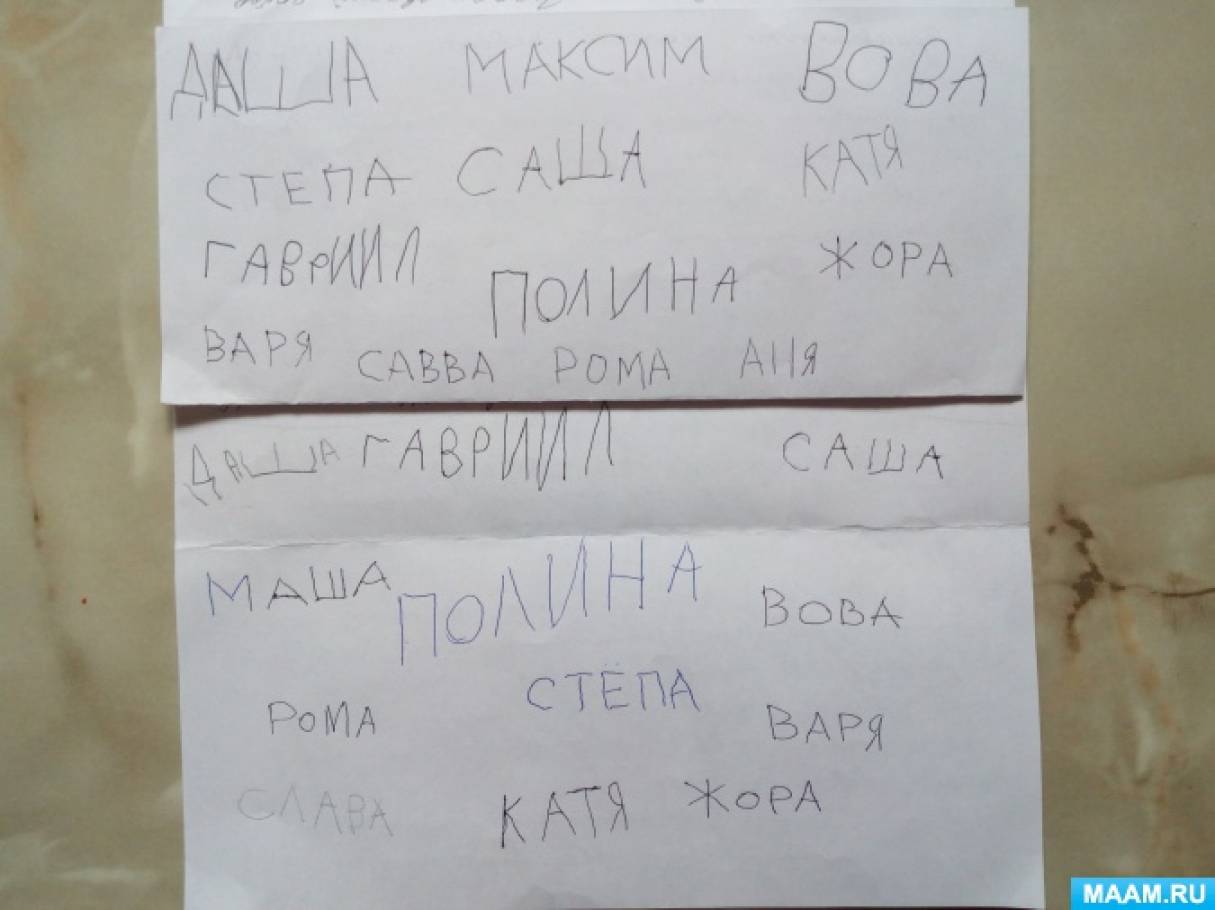 ДАША МАКСИМ ВОВА
СТЕПА САША КАТЯ
ГАВРИИЛ ПОЛИНА ЖОРА
ВАРЯ САВВА РОМА АНЯ
ДАША ГАВРИИЛ САША
МАША ПОЛИНА ВОВА
СТЁПА
РОМА ВАРЯ
СЛАВА КАТЯ ЖОРА
MAAM.RU